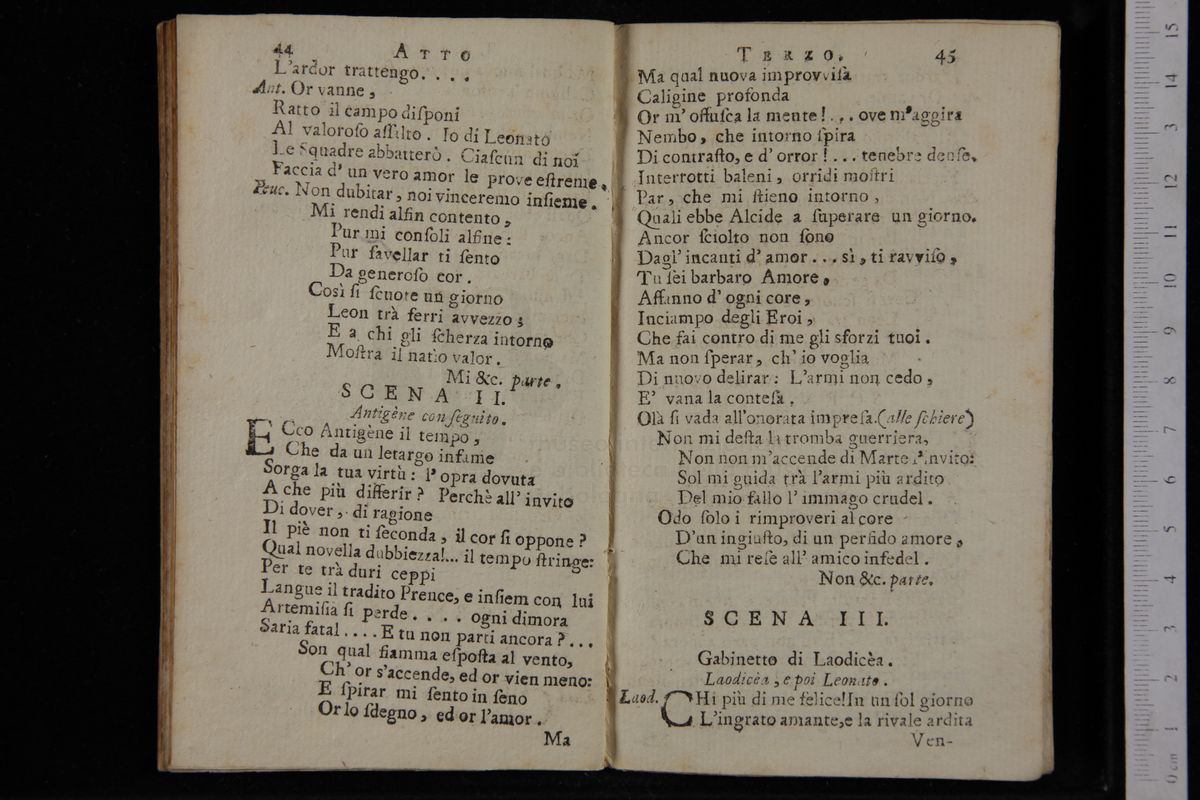 44 ATTO
L'ardor trattengo. . . .
Ant. Or vanne,
Ratto il campo diſponi
Al valoroſo aſſalto. Io di Leonato
Le Squadre abbatterò. Ciaſcun di noi
Faccia d' un vero amor le prove eſtreme.
Peuc. Non dubitar, noi vinceremo inſieme.
Mi rendi alfin contento,
Pur mi conſoli alfine:
Pur favellar ti ſento
Da generoſo cor.
Così ſi ſcuote un giorno
Leon trà ferri avvezzo;
E a chi gli ſcherza intorno
Moſtra il natio valor.
Mi &c. parte.
SCENA II.
Antigène con ſeguito.
ECco Antigène il tempo,
Che da un letargo infame
Sorga la tua virtù: l' opra dovuta
A che più differir? Perchè all' invito
Di dover, di ragione
Il piè non ti ſeconda, il cor ſi oppone?
Qual novella dubbiezza!... il tempo ſtringe:
Per te trà duri ceppi
Langue il tradito Prence, e inſiem con lui
Artemiſia ſi perde. . . . ogni dimora
Saria fatal.... E tu non parti ancora?...
Son qual fiamma eſpoſta al vento,
Ch' or s'accende, ed or vien meno:
E ſpirar mi ſento in ſeno
Or lo ſdegno, ed or l'amor.
Ma
TERZO. 45
Ma qual nuova improvviſa
Caligine profonda
Or m' offuſca la mente!... ove m'aggira
Nembo, che intorno ſpira
Di contraſto, e d' orror!... tenebre denſe,
Interrotti baleni, orridi moſtri
Par, che mi ſtieno intorno,
Quali ebbe Alcide a ſuperare un giorno.
Ancor ſciolto non ſono
Dagl' incanti d' amor... sì, ti ravviſo,
Tu ſei barbaro Amore,
Affanno d' ogni core,
Inciampo degli Eroi,
Che fai contro di me gli sforzi tuoi.
Ma non ſperar, ch' io voglia
Di nuovo delirar: L'armi non cedo,
E' vana la conteſa.
Olà ſi vada all'onorata impreſa.(alle ſchiere)
Non mi deſta la tromba guerriera,
Non non m'accende di Marte l'invito:
Sol mi guida trà l'armi più ardito
Del mio fallo l' immago crudel.
Odo ſolo i rimproveri al core
D'un ingiuſto, di un perfido amore,
Che mi reſe all' amico infedel.
Non &c. parte.
SCENA III.
Gabinetto di Laodicèa.
Laodicèa, e poi Leonato.
Laod. CHi più di me felice! In un ſol giorno
L'ingrato amante, e la rivale ardita
Ven-